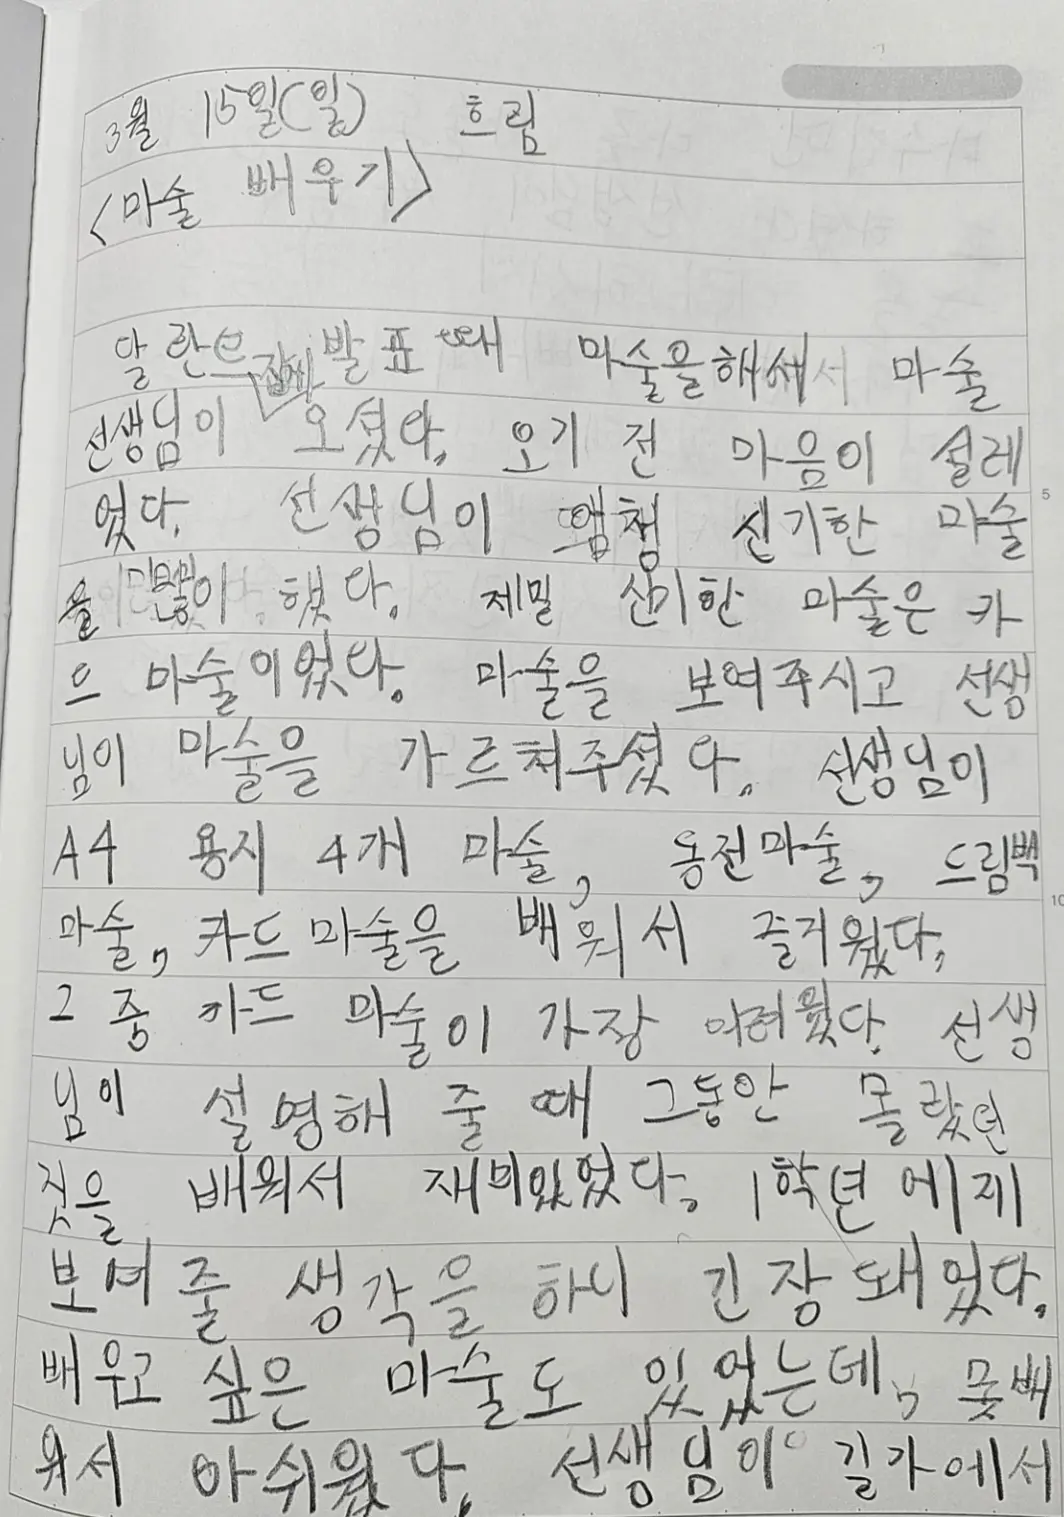 3월 15일(일) 흐림
<마술 배우기>
달란트 잔치 발표 때 마술을해서 마술
선생님이 오셨다. 오기 전 마음이 설레
었다. 선생님이 엄청 신기한 마술
을 많이 했다. 제밀 신기한 마술은 카
으 마술이었다. 마술을 보여주시고 선생
님이 마술을 가르쳐주셨다. 선생님이
A4 용지 4개 마술, 동전마술, 드림백
마술, 카드마술을 배워서 즐거웠다,
그 중 카드 마술이 가장 어려웠다. 선생
님이 설명해 줄 때 그동안 몰랐던
것을 배워서 재미있었다. 1학년에게
보여줄 생각을 하니 긴장돼었다.
배우고 싶은 마술도 있었는데, 못배
워서 아쉬웠다. 선생님이 길가에서
5
10